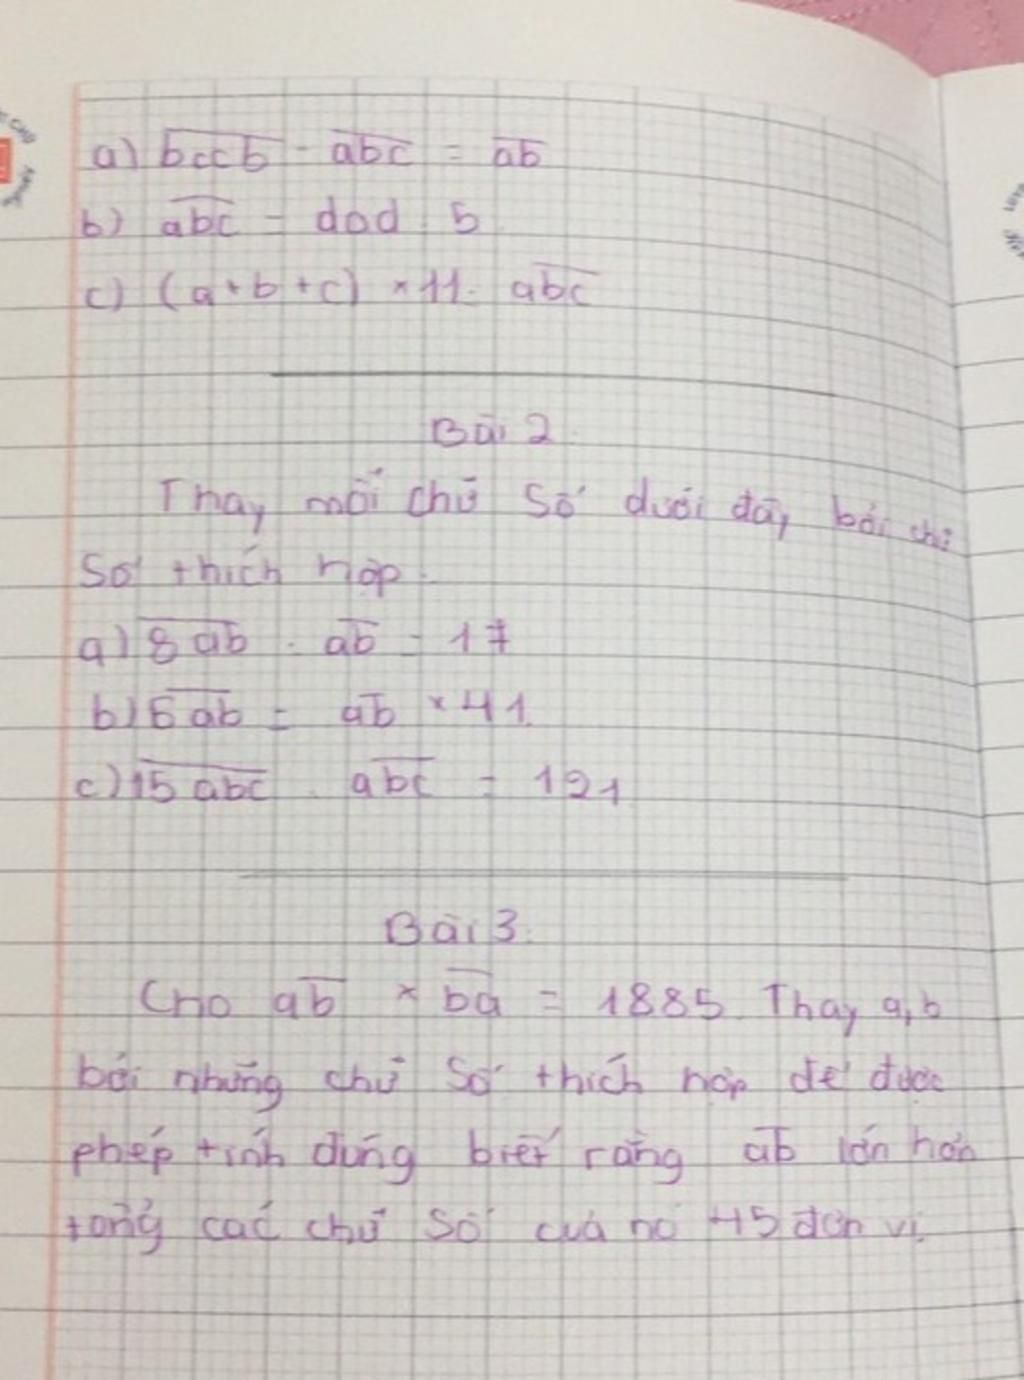 a) bccb - abc = ab
b) abc = dad . 5
c) (a + b + c) × 11 = abc
Bài 2
Thay mỗi chữ số dưới đây bởi chữ
số thích hợp.
a) 8ab : ab = 17
b) 6ab = ab × 41
c) 15abc : abc = 121
Bài 3
Cho ab × ba = 1885. Thay a, b
bởi những chữ số thích hợp để được
phép tính đúng biết rằng ab lớn hơn
tổng các chữ số của nó 45 đơn vị.